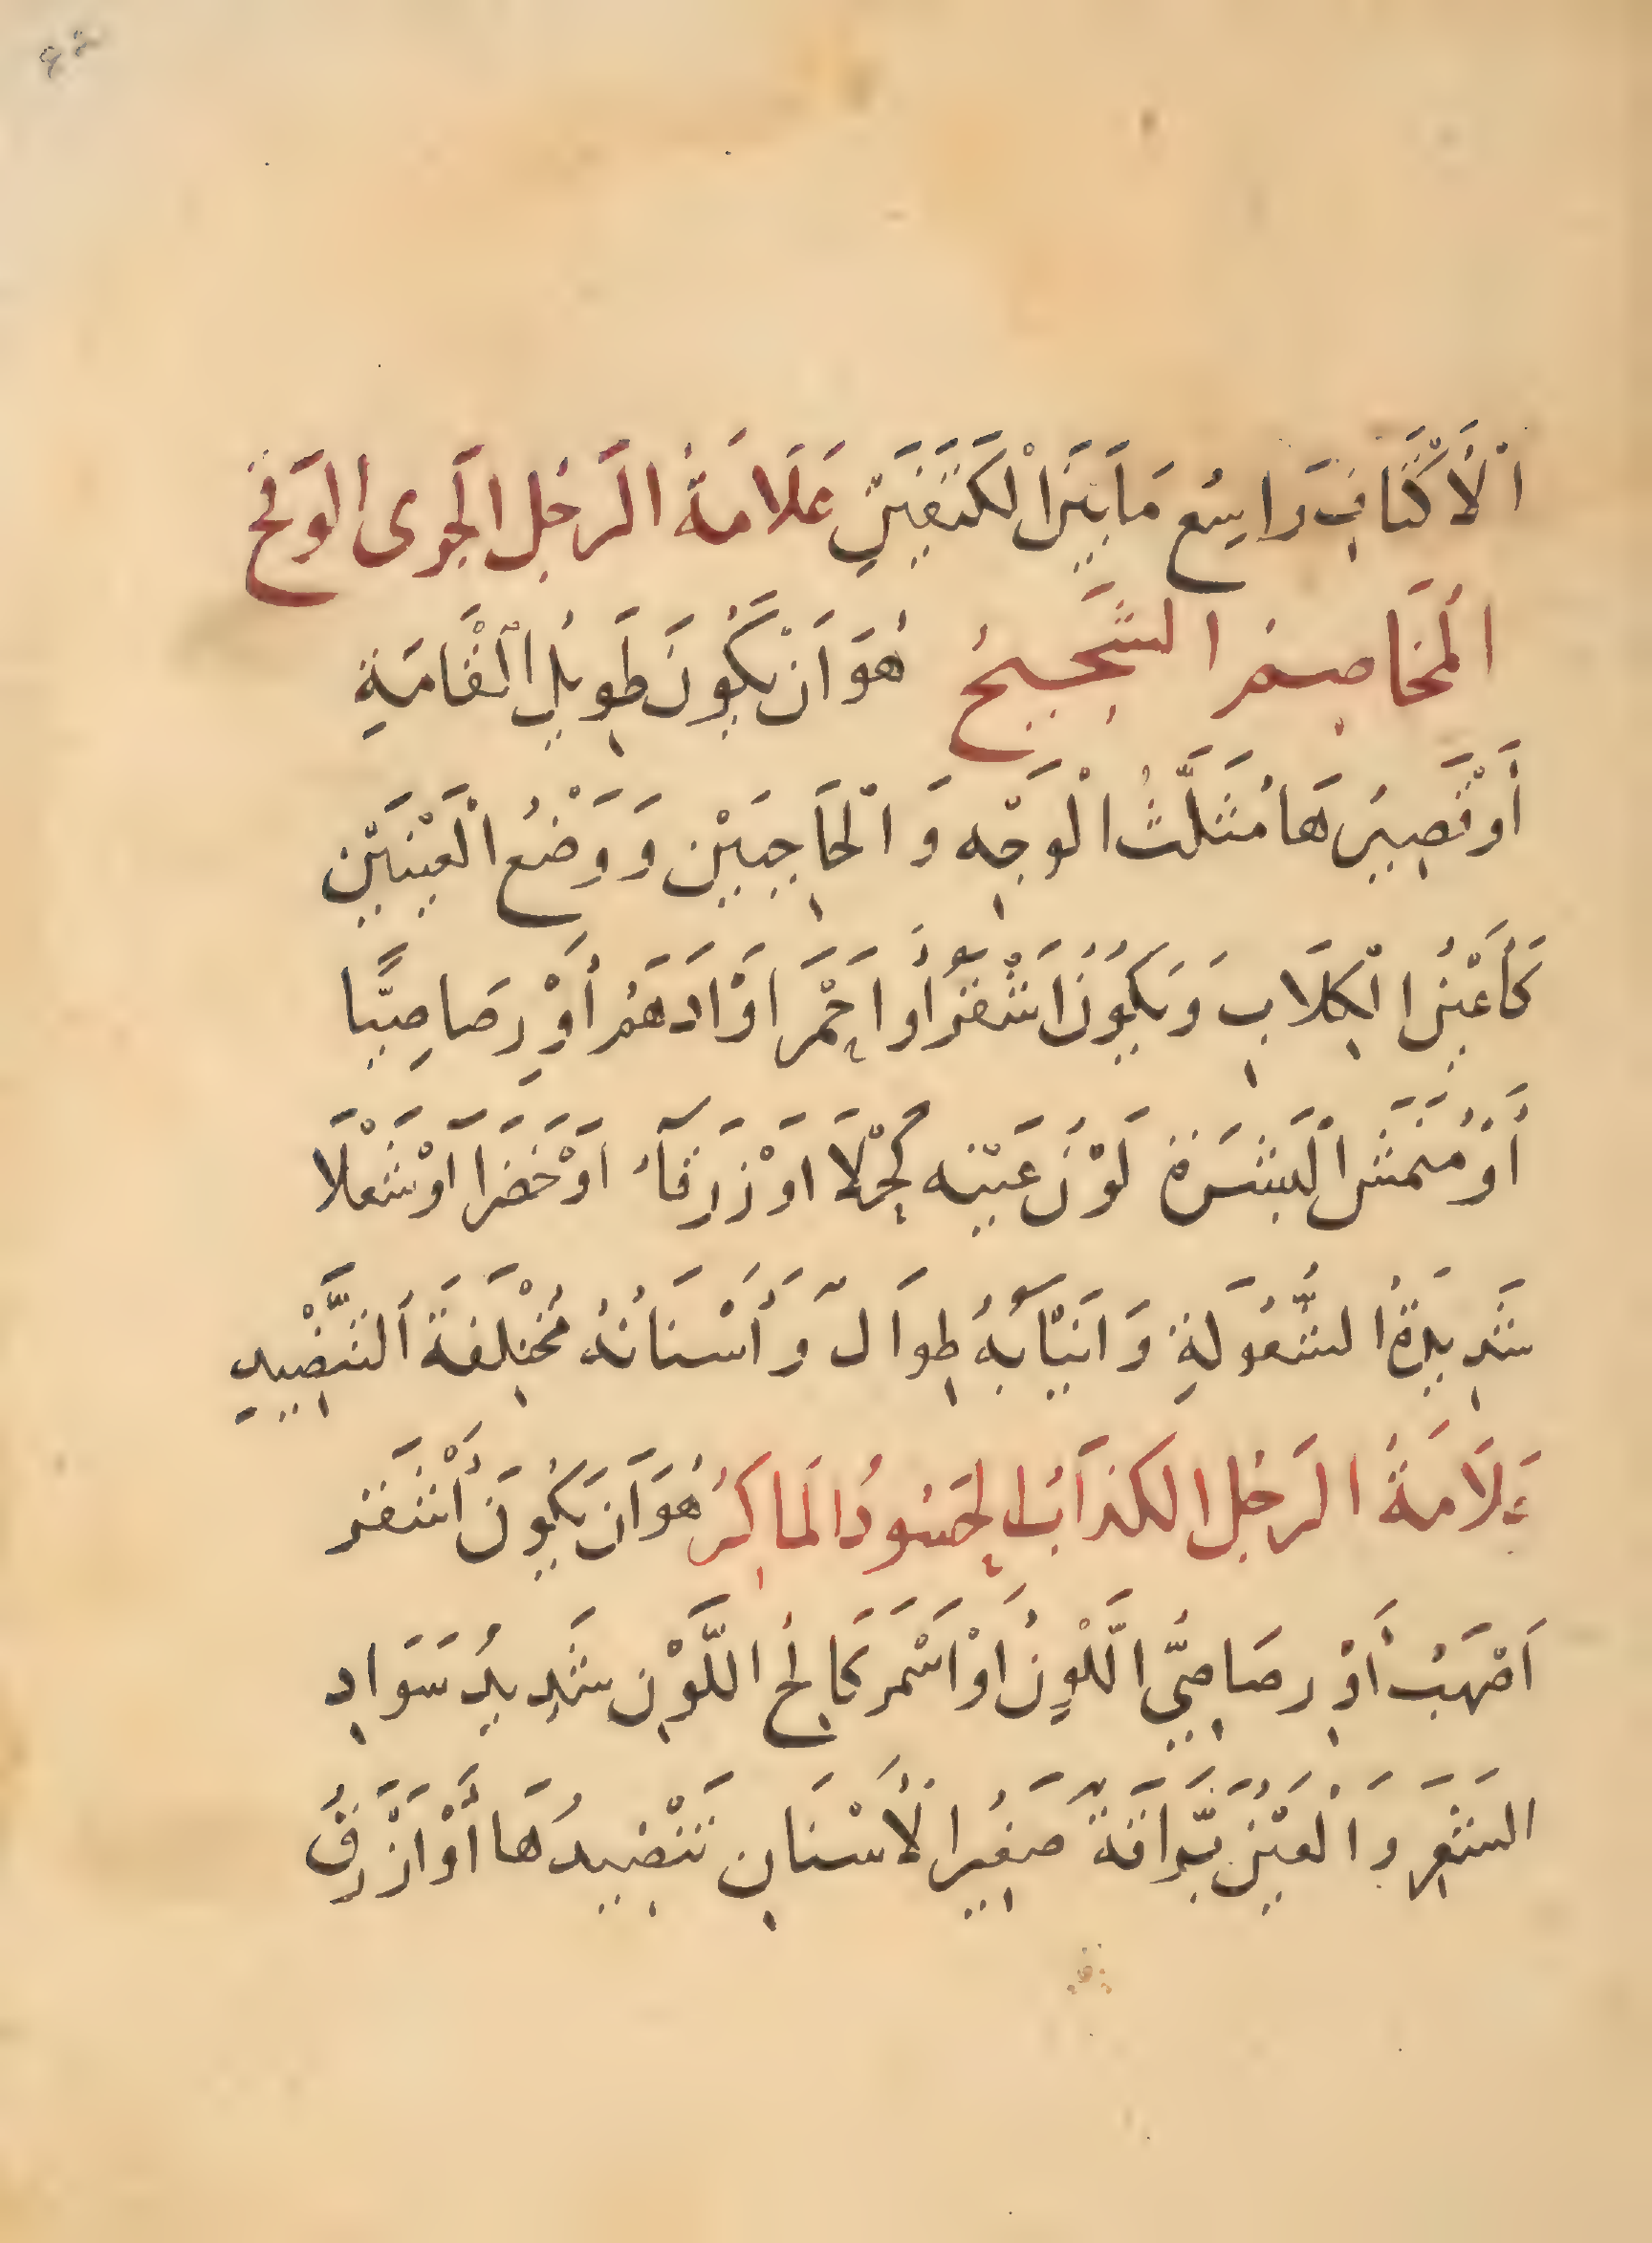 اْلأَكْتَافِ وَاسِع مَابَيْنَ اْلكَتَفَيْنِ عَلَامَةُ الرَجُل الجَرى الوَقِح
المُخَاصِمُ الشَحِيحُ هُوَ اَنْ يَكُونَ طَوِيلِ الْقَامَةِ
أَوْ قَصِيرُهَا مُثَلَّثُ الْوَجْهِ وَ الْحَاجِبَيْن وَ وَضْعُ الْعَيْنَيْن
كَأَعْيُنُ الْكِلَابِ وَيَكُونُ اَشْقَرُ أَوْ اَحْمَرَ اوْ اَدهَمُ أَوْ رِصَاصِيًّا
أَوْ مُنَمَّشَ الْبَشَرَة لَوْنُ عَيْنِه كَحْلَا اَوْ زَرقَآءُ اَوْ خَضَرَا اَوْ شَعْلَا
شَدِيدَةُ الشُّعُولَةِ وَ اَنْيَابَهُ طِوَال وَ أَسْنَانُهُ مُخْتَلِفَةَ التَّنْضِيدِ
عَلَامَةُ الرَجُل الكَذَابُ الحَسُودُ المَاكِرُ هُوَ اَن يَكُونَ أَشْقَر
اَصْهَبُ أَوْ رِصَاصِيُّ اللَّوْنُ أَوْ اَسْمَر كَالِحُ اللَّوْنِ شَدِيدُ سَوَادِ
الشَعْرِ وَ الْعَيْنُ بَرَّاقَةً صَغِيرُ الْأَسْنَانِ تَنْضِيدُهَا أَوْ اَزْرَقُ